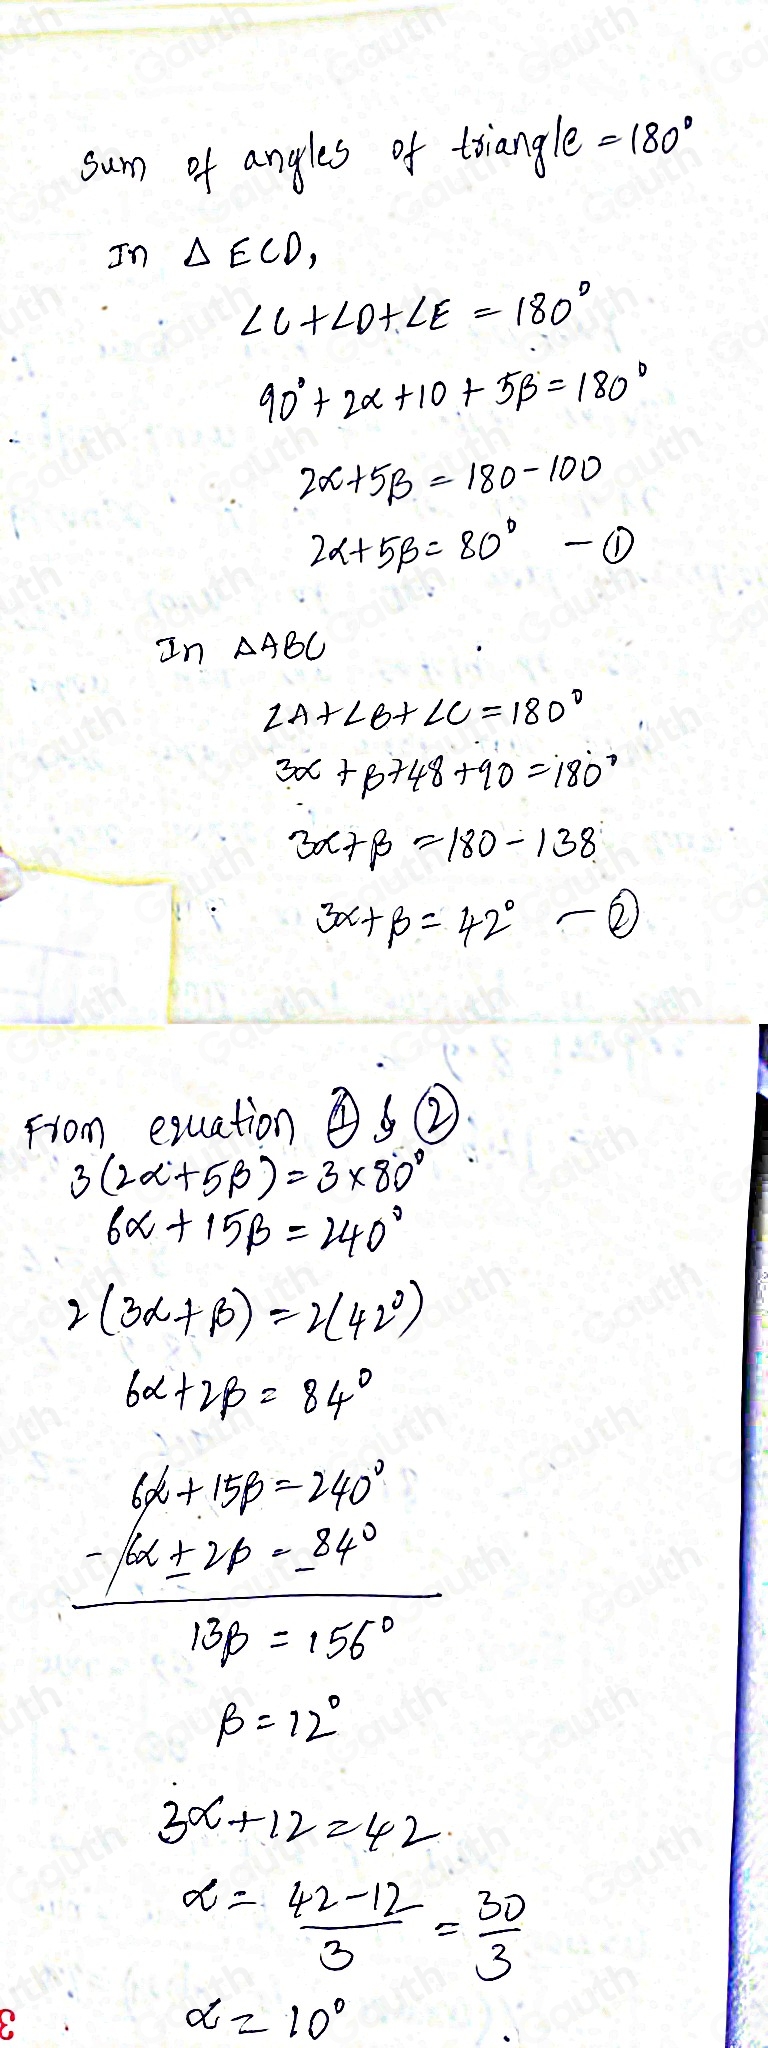 Sum of angles of triangle = 180°
In △ ECD,
∠C+∠D+∠E = 180°
90°+2α+10+5β=180°
2α+5β = 180-100
2α+5β= 80° - ①
In △ABC
∠A+∠B+∠C=180°
3α+β+48+90=180°
3α+β =180-138
3α+β= 42° - ②
From equation ① & ②
3(2α+5β)=3×80°
6α+15β=240°
2(3α+β)=2(42°)
6α+2β= 84°
6α+15β=240°
- 6α ± 2β = _84°
13β = 156°
β=12°
3α+12=42
α= 42-12/3 = 30/3
α= 10°
3